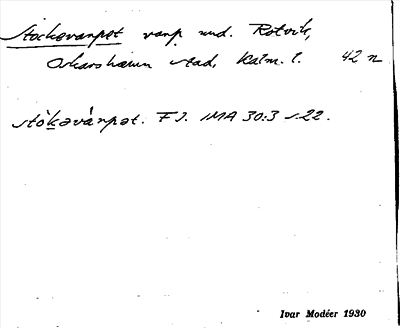 Stockavarpet varp und. Rotvik,
Oskarshamn stad, Kalm. l. 42 n
stòkavárpat. FJ. IMA 30:3 s. 22.
Ivar Modéer 1930